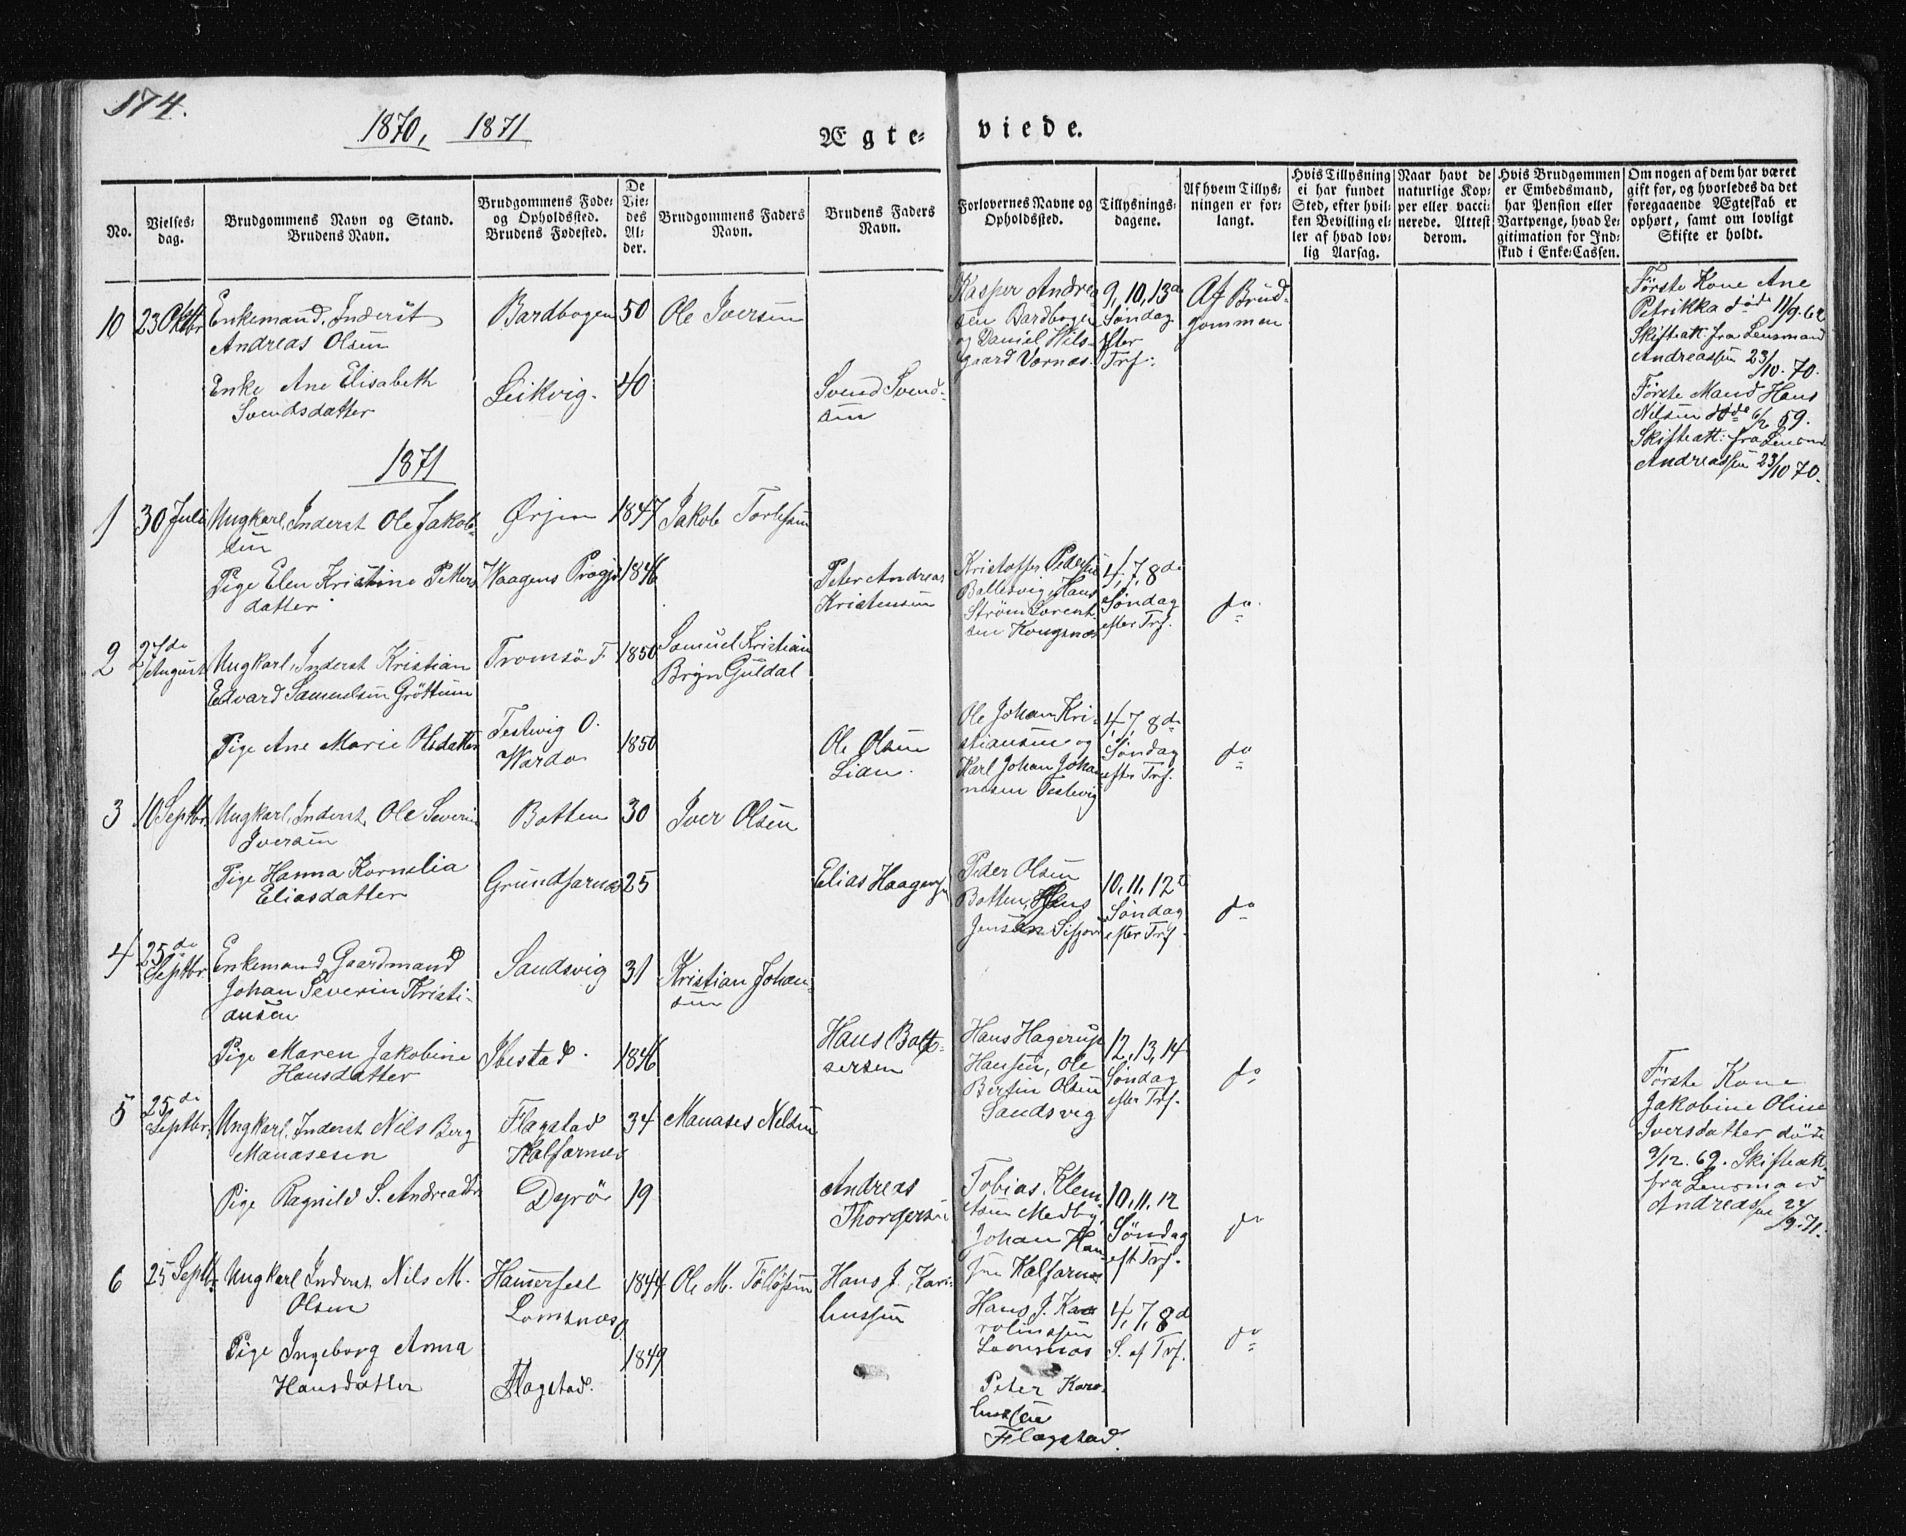 174.
1870, 1871
Ægte- viede.
No.
Vielses-
dag.
Brudgommens Navn og Stand.
Brudens Navn.
Brudgommens Føde-
og Opholdssted.
Brudens Fødested.
De
Vie-
des
Al-
der.
Brudgommens Faders
Navn.
Brudens Faders
Navn.
Forlovernes Navne og
Opholdssted.
Tillysnings-
dagene.
Af hvem Tillys-
ningen er for-
langt.
Hvis Tillysning
ei har fundet
Sted, efter hvil-
ken Bevilling el-
ler af hvad lov-
lig Aarsag.
Naar havt de
naturlige Kop-
per eller vacci-
nerede. Attest
derom.
Hvis Brudgommen
er Embedsmand,
har Pension eller
Vartpenge, hvad Le-
gitimation for Ind-
skud i Enke-Cassen.
Om nogen af dem har været
gift før, og hvorledes da det
foregaaende Ægteskab er
ophørt, samt om lovligt
Skifte er holdt.
10
23 Oktbr
Enkemand, Inderst
Andreas Olsen
Bardbogen
50
Ole Iversen
Kasper Andrea-
sen Bardbogen
og Daniel Hils-
gaard Vornæs.
9, 10, 13de
Søndag
efter
Trf:
Af Brud-
gommen
Første Kone Ane
Petrikka døde 11/9.62
Skifteatt: fra Lensmand
Andreassen 23/10.70.
Enke Ane Elisabeth
Svendsdatter
Leikvig.
40
Svend Svend-
sen
Første Mand Hans
Nilsen døde 6/2 59.
Skifteatt: fra Lensmd
Andreassen 23/10 70.
1871
1
30 Juli
Ungkarl, Inderst Ole Jakob-
sen
Ørjen
1847
Jakob
Pige Elen Kristine Petters
datter
Haagens
1846
Peter Andreas
Kristensen
Kristoffer Pedersen
Ballesvig, Hans
Strøm Lorent-
sen Kongsnæs
4, 7, 8de
Søndag
efter Trf.
do
2
27de
August
Ungkarl, Inderst Kristian
Edvard Samuelsen Grøttum
Tromsø F.
1850
Samuel Kristian
Bryn Guldal
Pige Ane Marie Olsdatter
Testevig O.
Wardo
1850
Ole Olsen
Lian.
Ole Johan Kri-
stiansen og
Karl Johan Johan
nesen Testevig
4, 7, 8de
Søndag
efter Trf.
do
3
10 Septbr.
Ungkarl, Inderst, Ole Severin
Iversen
Botten
30
Iver Olsen
Pige Hanna Kornelia
Eliasdatter
Grundfarnæs
25
Elias Haagensen
Peder Olsen
Botten, Hans
Jensen
10, 11, 12te
Søndag
efter Trf.
do
4
25de
Septbr
Enkemand, Gaardmand
Johan Severin Kristi-
ansen
Sandsvig
31
Kristian Johan-
sen
Pige Maren Jakobine
Hansdatter
Ibestad.
1846
Hans Balt-
sersen
Hans Hagerup
Hansen, Ole
Bertin Olsen
Sandsvig
12, 13, 14
Søndag
efter Trf.
do
Første Kone
Jakobine Oline
Iversdatter døde
9/12.69. Skifteatt.
fra Lensmand
Andreassen 24/9.71.
5
25de
Septbr.
Ungkarl, Inderst Nils Berg
Manasesen
Flagstad
Kalfarnæs
34
Manases Nelsen
Pige Ragnild S. Andreasdtr
Dyrø
19
Andreas
Thorgersen
Tobias. Klem-
etsen Medby,
Johan Han-
sen Kalfarnæs
10, 11, 12
Søndag
eft Trf.
do
6
25 Septbr.
Ungkarl Inderst, Nils M.
Olsen
Hamerfest
Lomsnæs
1844
Ole M.
Hans J. Karo-
linssen
Pige Ingeborg Anna
Hansdatter
Flagstad.
1849
Hans J. Ka-
rolinssen
Lomsnæs
Peter Karo-
linssen
Flagstad.
4, 7, 8d
S. ef Trf.
do